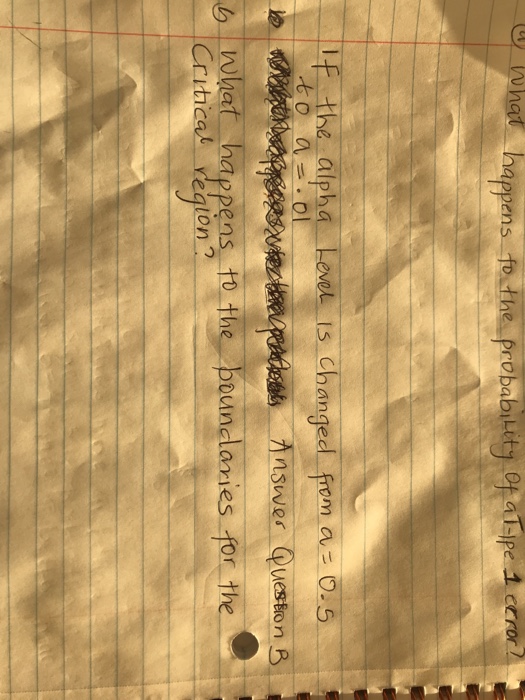 a What happens to the probability of a Type 1 error?
If the alpha level is changed from a = 0.5
to a = .01
Answer Question B
b What happens to the boundaries for the
Critical region?